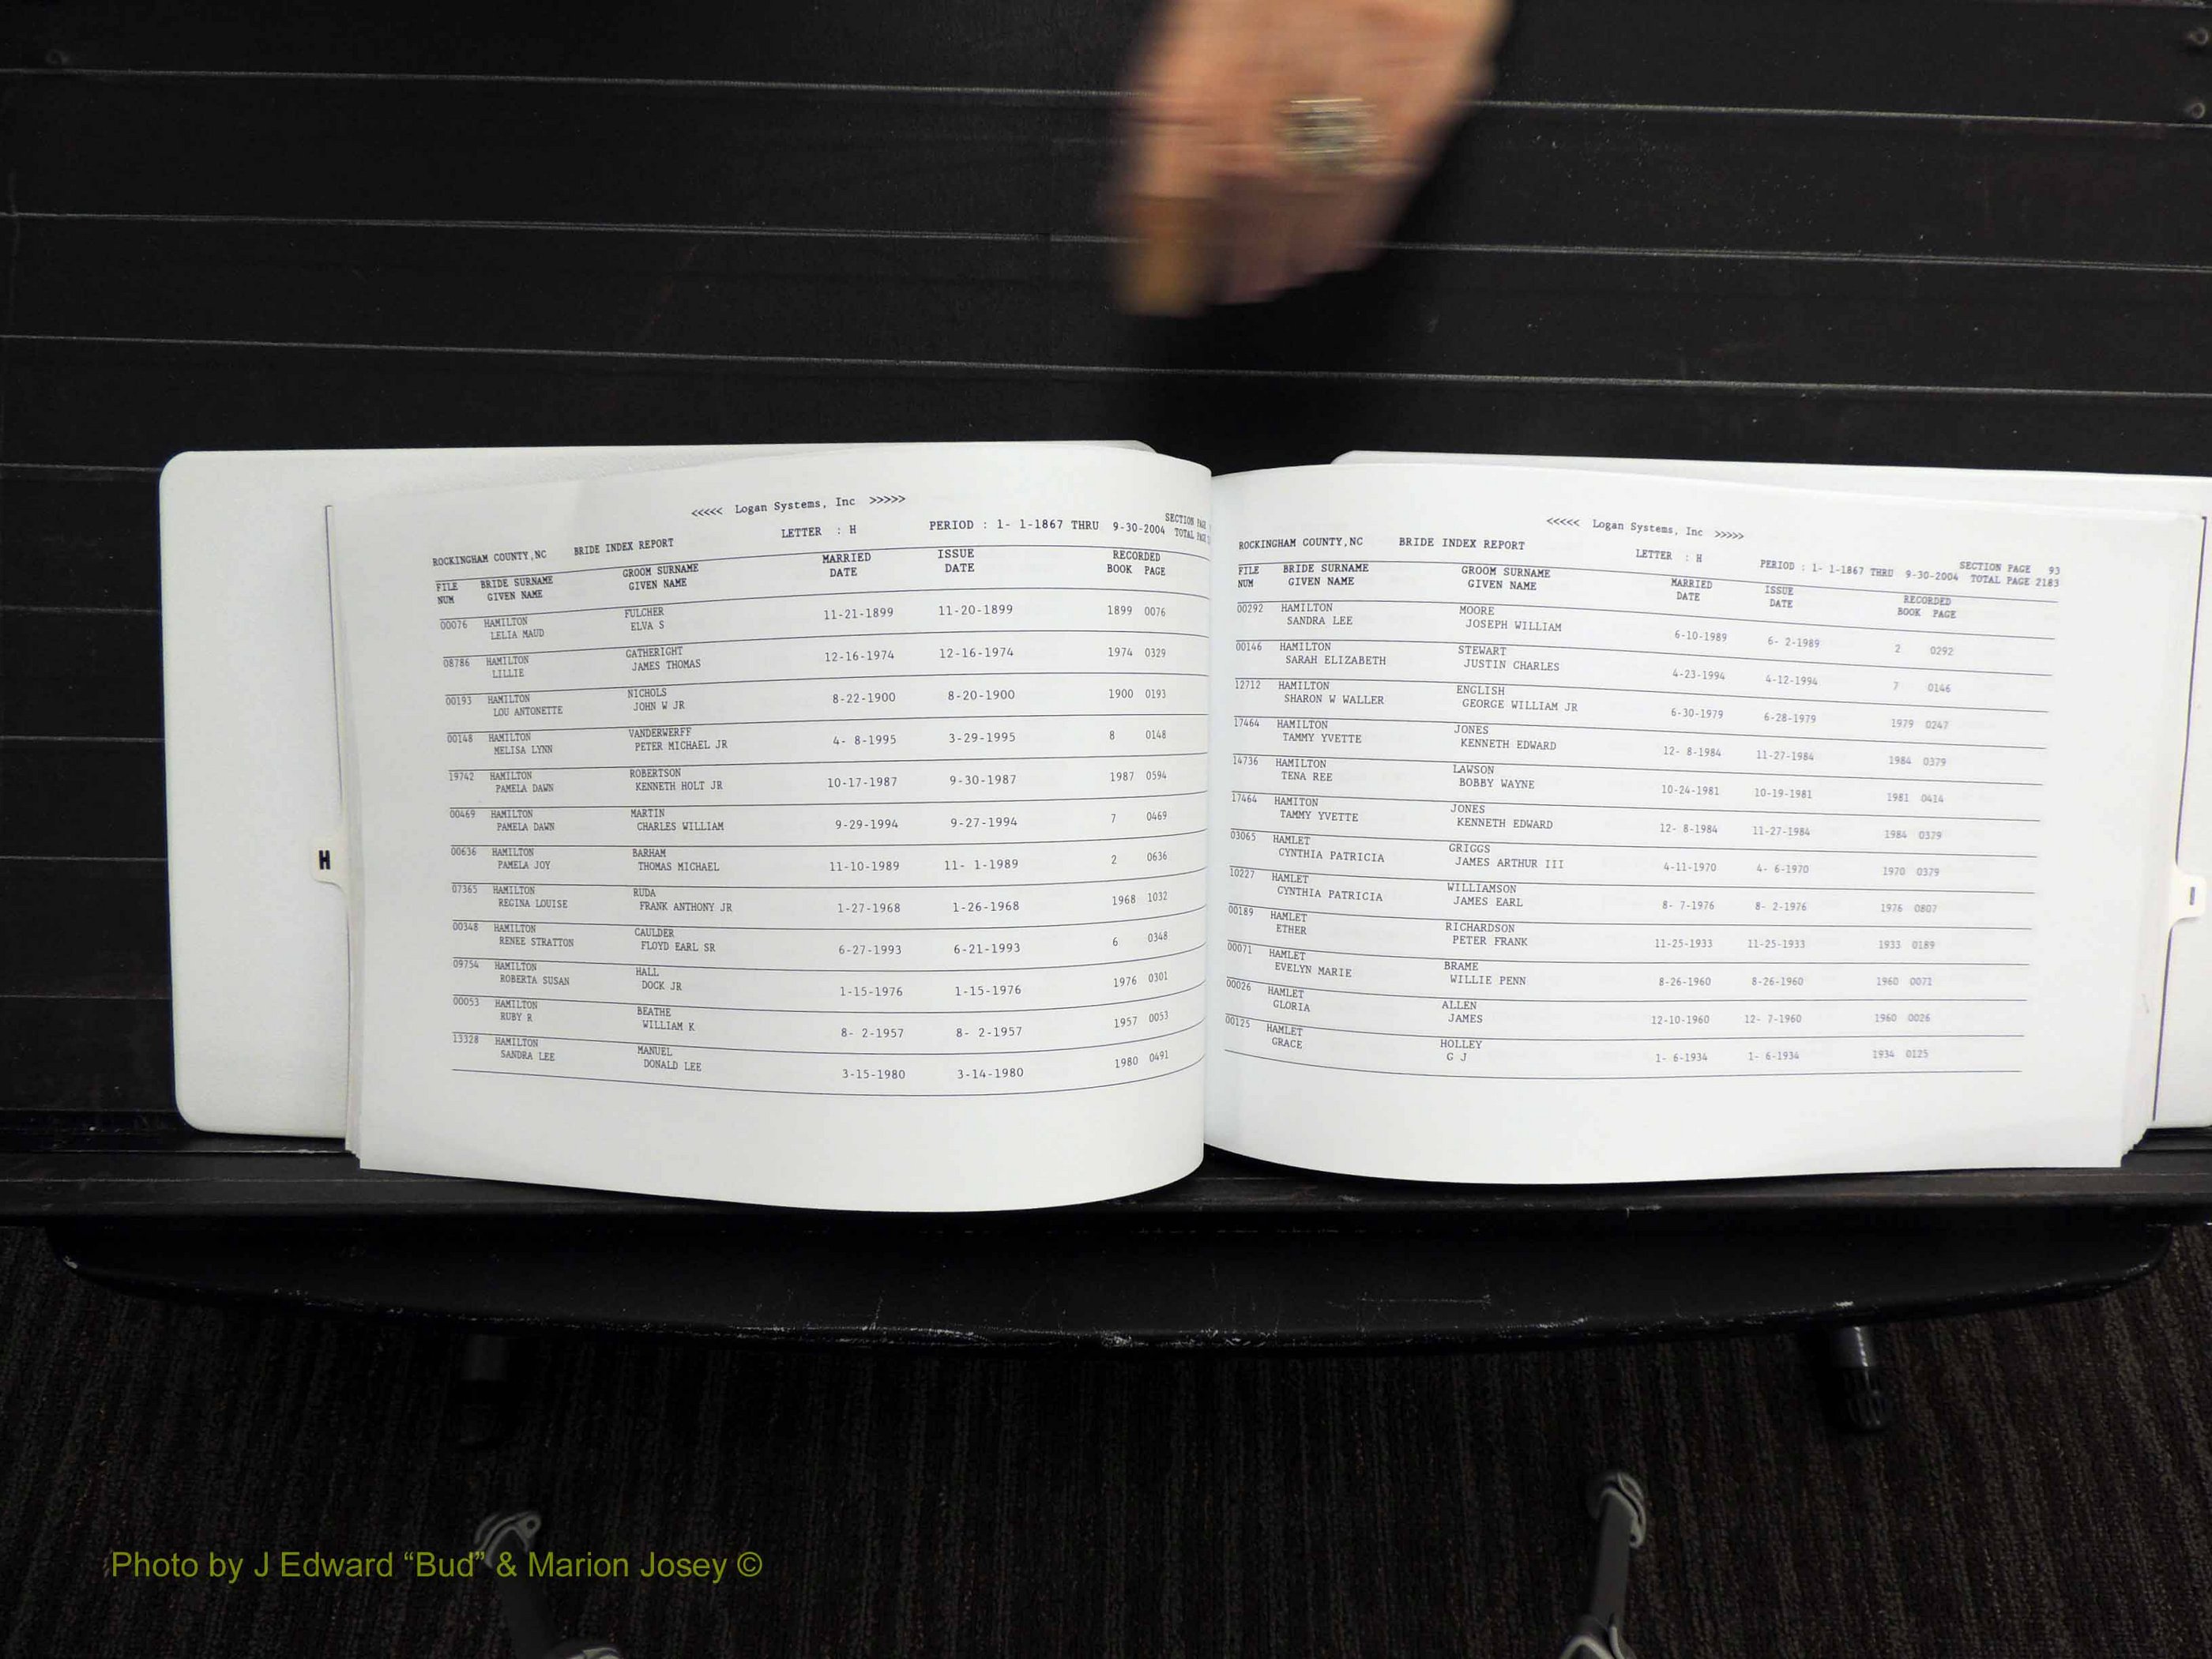 <<<<< Logan Systems, Inc >>>>>
ROCKINGHAM COUNTY,NC BRIDE INDEX REPORT LETTER : H PERIOD : 1- 1-1867 THRU 9-30-2004 SECTION PAGE
TOTAL PAGE
FILE BRIDE SURNAME GROOM SURNAME MARRIED ISSUE RECORDED
NUM GIVEN NAME GIVEN NAME DATE DATE BOOK PAGE
00076 HAMILTON FULCHER 11-21-1899 11-20-1899 1899 0076
LELIA MAUD ELVA S
08786 HAMILTON GATHERIGHT 12-16-1974 12-16-1974 1974 0329
LILLIE JAMES THOMAS
00193 HAMILTON NICHOLS 8-22-1900 8-20-1900 1900 0193
LOU ANTONETTE JOHN W JR
00148 HAMILTON VANDERWERFF 4- 8-1995 3-29-1995 8 0148
MELISA LYNN PETER MICHAEL JR
19742 HAMILTON ROBERTSON 10-17-1987 9-30-1987 1987 0594
PAMELA DAWN KENNETH HOLT JR
00469 HAMILTON MARTIN 9-29-1994 9-27-1994 7 0469
PAMELA DAWN CHARLES WILLIAM
00636 HAMILTON BARHAM 11-10-1989 11- 1-1989 2 0636
PAMELA JOY THOMAS MICHAEL
07365 HAMILTON RUDA 1-27-1968 1-26-1968 1968 1032
REGINA LOUISE FRANK ANTHONY JR
00348 HAMILTON CAULDER 6-27-1993 6-21-1993 6 0348
RENEE STRATTON FLOYD EARL SR
09754 HAMILTON HALL 1-15-1976 1-15-1976 1976 0301
ROBERTA SUSAN DOCK JR
00053 HAMILTON BEATHE 8- 2-1957 8- 2-1957 1957 0053
RUBY R WILLIAM K
13328 HAMILTON MANUEL 3-15-1980 3-14-1980 1980 0491
SANDRA LEE DONALD LEE
H
<<<<< Logan Systems, Inc >>>>>
ROCKINGHAM COUNTY,NC BRIDE INDEX REPORT LETTER : H PERIOD : 1- 1-1867 THRU 9-30-2004 SECTION PAGE 93
TOTAL PAGE 2183
FILE BRIDE SURNAME GROOM SURNAME MARRIED ISSUE RECORDED
NUM GIVEN NAME GIVEN NAME DATE DATE BOOK PAGE
00292 HAMILTON MOORE 6-10-1989 6- 2-1989 2 0292
SANDRA LEE JOSEPH WILLIAM
00146 HAMILTON STEWART 4-23-1994 4-12-1994 7 0146
SARAH ELIZABETH JUSTIN CHARLES
12712 HAMILTON ENGLISH 6-30-1979 6-28-1979 1979 0247
SHARON W WALLER GEORGE WILLIAM JR
17464 HAMILTON JONES 12- 8-1984 11-27-1984 1984 0379
TAMMY YVETTE KENNETH EDWARD
14736 HAMILTON LAWSON 10-24-1981 10-19-1981 1981 0414
TENA REE BOBBY WAYNE
17464 HAMITON JONES 12- 8-1984 11-27-1984 1984 0379
TAMMY YVETTE KENNETH EDWARD
03065 HAMLET GRIGGS 4-11-1970 4- 6-1970 1970 0379
CYNTHIA PATRICIA JAMES ARTHUR III
10227 HAMLET WILLIAMSON 8- 7-1976 8- 2-1976 1976 0807
CYNTHIA PATRICIA JAMES EARL
00189 HAMLET RICHARDSON 11-25-1933 11-25-1933 1933 0189
ETHER PETER FRANK
00071 HAMLET BRAME 8-26-1960 8-26-1960 1960 0071
EVELYN MARIE WILLIE PENN
00026 HAMLET ALLEN 12-10-1960 12- 7-1960 1960 0026
GLORIA JAMES
00125 HAMLET HOLLEY 1- 6-1934 1- 6-1934 1934 0125
GRACE G J
I
Photo by J Edward “Bud” & Marion Josey ©